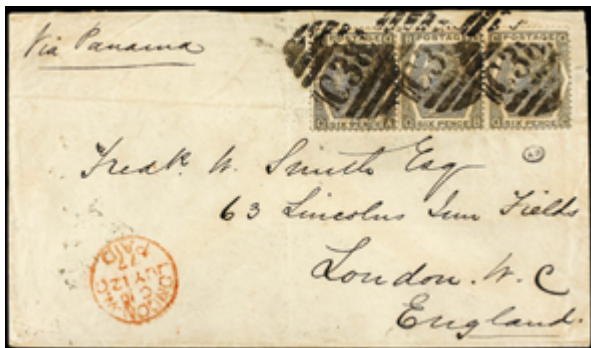 Via Panama
POSTAGE POSTAGE POSTAGE
C38 C38 C38
SIX PENCE SIX PENCE SIX PENCE
Fredk. W. Smith Esq
63 Lincolns Inn Fields
London. W. C
England.
LONDON
PAID